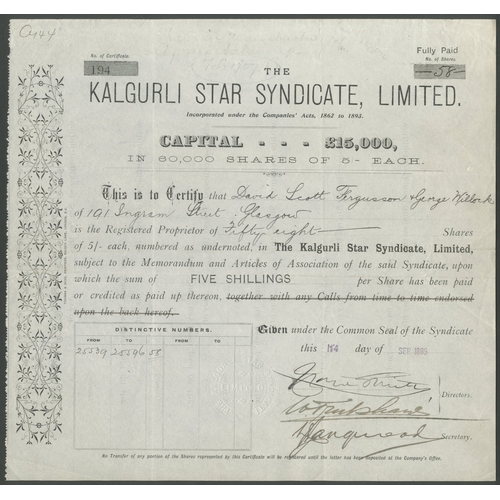 No. of Certificate.
194
Fully Paid
No. of Shares
—58—
THE
KALGURLI STAR SYNDICATE, LIMITED.
Incorporated under the Companies' Acts, 1862 to 1893.
CAPITAL - - - £15,000,
IN 60,000 SHARES OF 5/- EACH.
This is to Certify that David Scott Fergusson & George
of 101 Ingram Street Glasgow
is the Registered Proprietor of Fifty eight Shares
of 5/- each, numbered as undernoted, in The Kalgurli Star Syndicate, Limited,
subject to the Memorandum and Articles of Association of the said Syndicate, upon
which the sum of FIVE SHILLINGS per Share has been paid
or credited as paid up thereon, together with any Calls from time to time endorsed
upon the back hereof.
DISTINCTIVE NUMBERS.
FROM TO FROM TO
25539 25596 58
Given under the Common Seal of the Syndicate
this day of SEP
Directors.
Secretary.
No Transfer of any portion of the Shares represented by this Certificate will be registered until the latter has been deposited at the Company's Office.